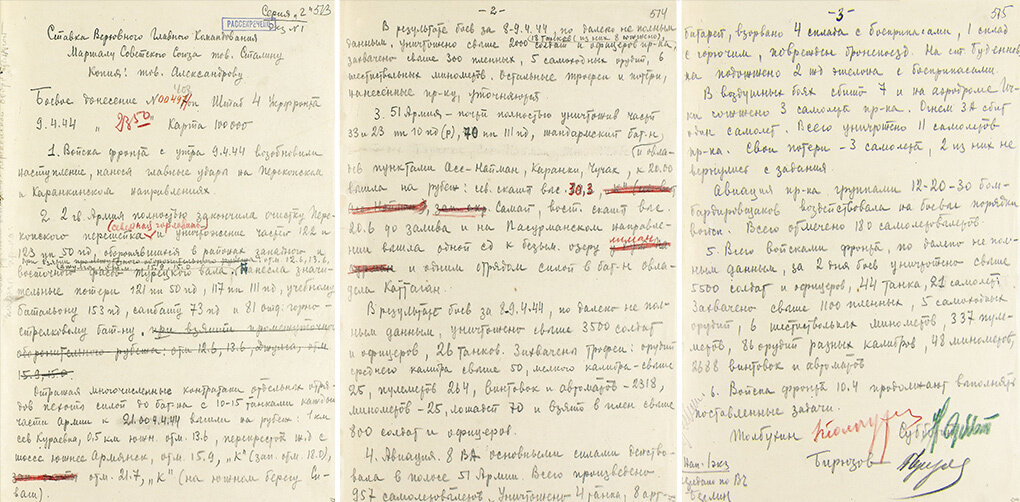 Серия "2" 573
РАССЕКРЕЧЕНО
Экз №1
Ставка Верховного Главного Командования
Маршалу Советского Союза тов. Сталину
Копия: тов. Александрову
Боевое донесение №00497/оп Штаб 4 Укрфронта
9.4.44 " 23 50 " Карта 100000
1. Войска фронта с утра 9.4.44 возобновили
наступление, нанося главные удары на Перекопском
и Каранкинском направлениях.
2. 2 гв. Армия полностью закончила очистку Пере-
(северная горловина)
копского перешейка и уничтожение частей 122 и
123 пп 50 пд, оборонявшихся в районах западного
восточнее Турецкого вала. Нанесла значи-
тельные потери 121 пп 50 пд, 117 пп 111 пд, учебному
батальону 153 пд, сапбату 73 пд и 81 отд. горно-
стрелковому бат-ну, при взятии промежуточно
оборонительного рубежа: отм 12.6, 13.6, Джулга, отм
15.9, 15.0
Отражая многочисленные контратаки отдельных отря-
дов пехоты силой до бат-на с 10-15 танками каждый
части Армии к 21.00 9.4.44 вышли на рубеж: 1 км
сев Кураевка, 0,5 км южн. отм. 13.6, перекресток ж.д с
шоссе южнее Армянск, отм. 15.9, "К" (зап. отм. 18.0),
отм. 21.7, "К" (на южном берегу Си-
ваш)
-2- 574
В результате боев за 8-9.4.44 по далеко не полным
данным, уничтожено свыше 2000 солдат и офицеров пр-ка,
захвачено свыше 300 пленных, 5 самоходных орудий, 6
шестиствольных минометов. Остальные трофеи и потери,
нанесенные пр-ку, уточняются.
3. 51 Армия - почти полностью уничтожив части
33 и 23 пп 10 пд (р), 70 пп 111 пд, жандармский бат-н
и овла-
дев пунктами Асс-Найман, Каранки, Чучак, к 20.00
вышла на рубеж: сев. скаты выс. 30,3,
Самай, вост. скаты выс.
20.6 до залива и на Пасурманском направле-
нии вышла одной сд к безым. озеру
и одним отрядом силой в бат-н овла-
дела Каттаган.
В результате боев за 8-9.4.44, по далеко не пол-
ным данным, уничтожено свыше 3500 солдат
и офицеров, 26 танков. Захвачено трофеи: орудий
среднего калибра свыше 50, мелкого калибра-свыше
25, пулеметов 264, винтовок и автоматов - 2318,
минометов - 25, лошадей 70 и взято в плен свыше
800 солдат и офицеров.
4. Авиация. 8 ВА основными силами действо-
вала в полосе 51 Армии. Всего произведено
957 самолетовылетов. Уничтожено 4 танка, 8 арт-
-3- 575
батарей, взорвано 4 склада с боеприпасами, 1 склад
с горючим, поврежден бронепоезд. На ст. Буденного
на подожжено 2 жд эшелона с боеприпасами.
В воздушных боях сбит 7 и на аэродроме Ич-
ки сожжено 3 самолета пр-ка. Огнем ЗА сбит
один самолет. Всего уничтожено 11 самолетов
пр-ка. Свои потери - 3 самолета, 2 из них не
вернулись с задания.
Авиация пр-ка группами 12-20-30 бом-
бардировщиков воздействовала на боевые порядки
войск. Всего отмечено 180 самолетовылетов
5. Всего войсками фронта по далеко не пол-
ным данным, за 2 дня боев уничтожено свыше
5500 солдат и офицеров, 44 танка, 21 самолет.
Захвачено свыше 1100 пленных, 5 самоходных
орудий, 6 шестиствольных минометов, 337 пуле-
метов, 86 орудий разных калибров, 48 минометов,
2688 винтовок и автоматов
6. Войска фронта 10.4 продолжают выполнять
поставленные задачи.
Толбухин Субботин
Бирюзов